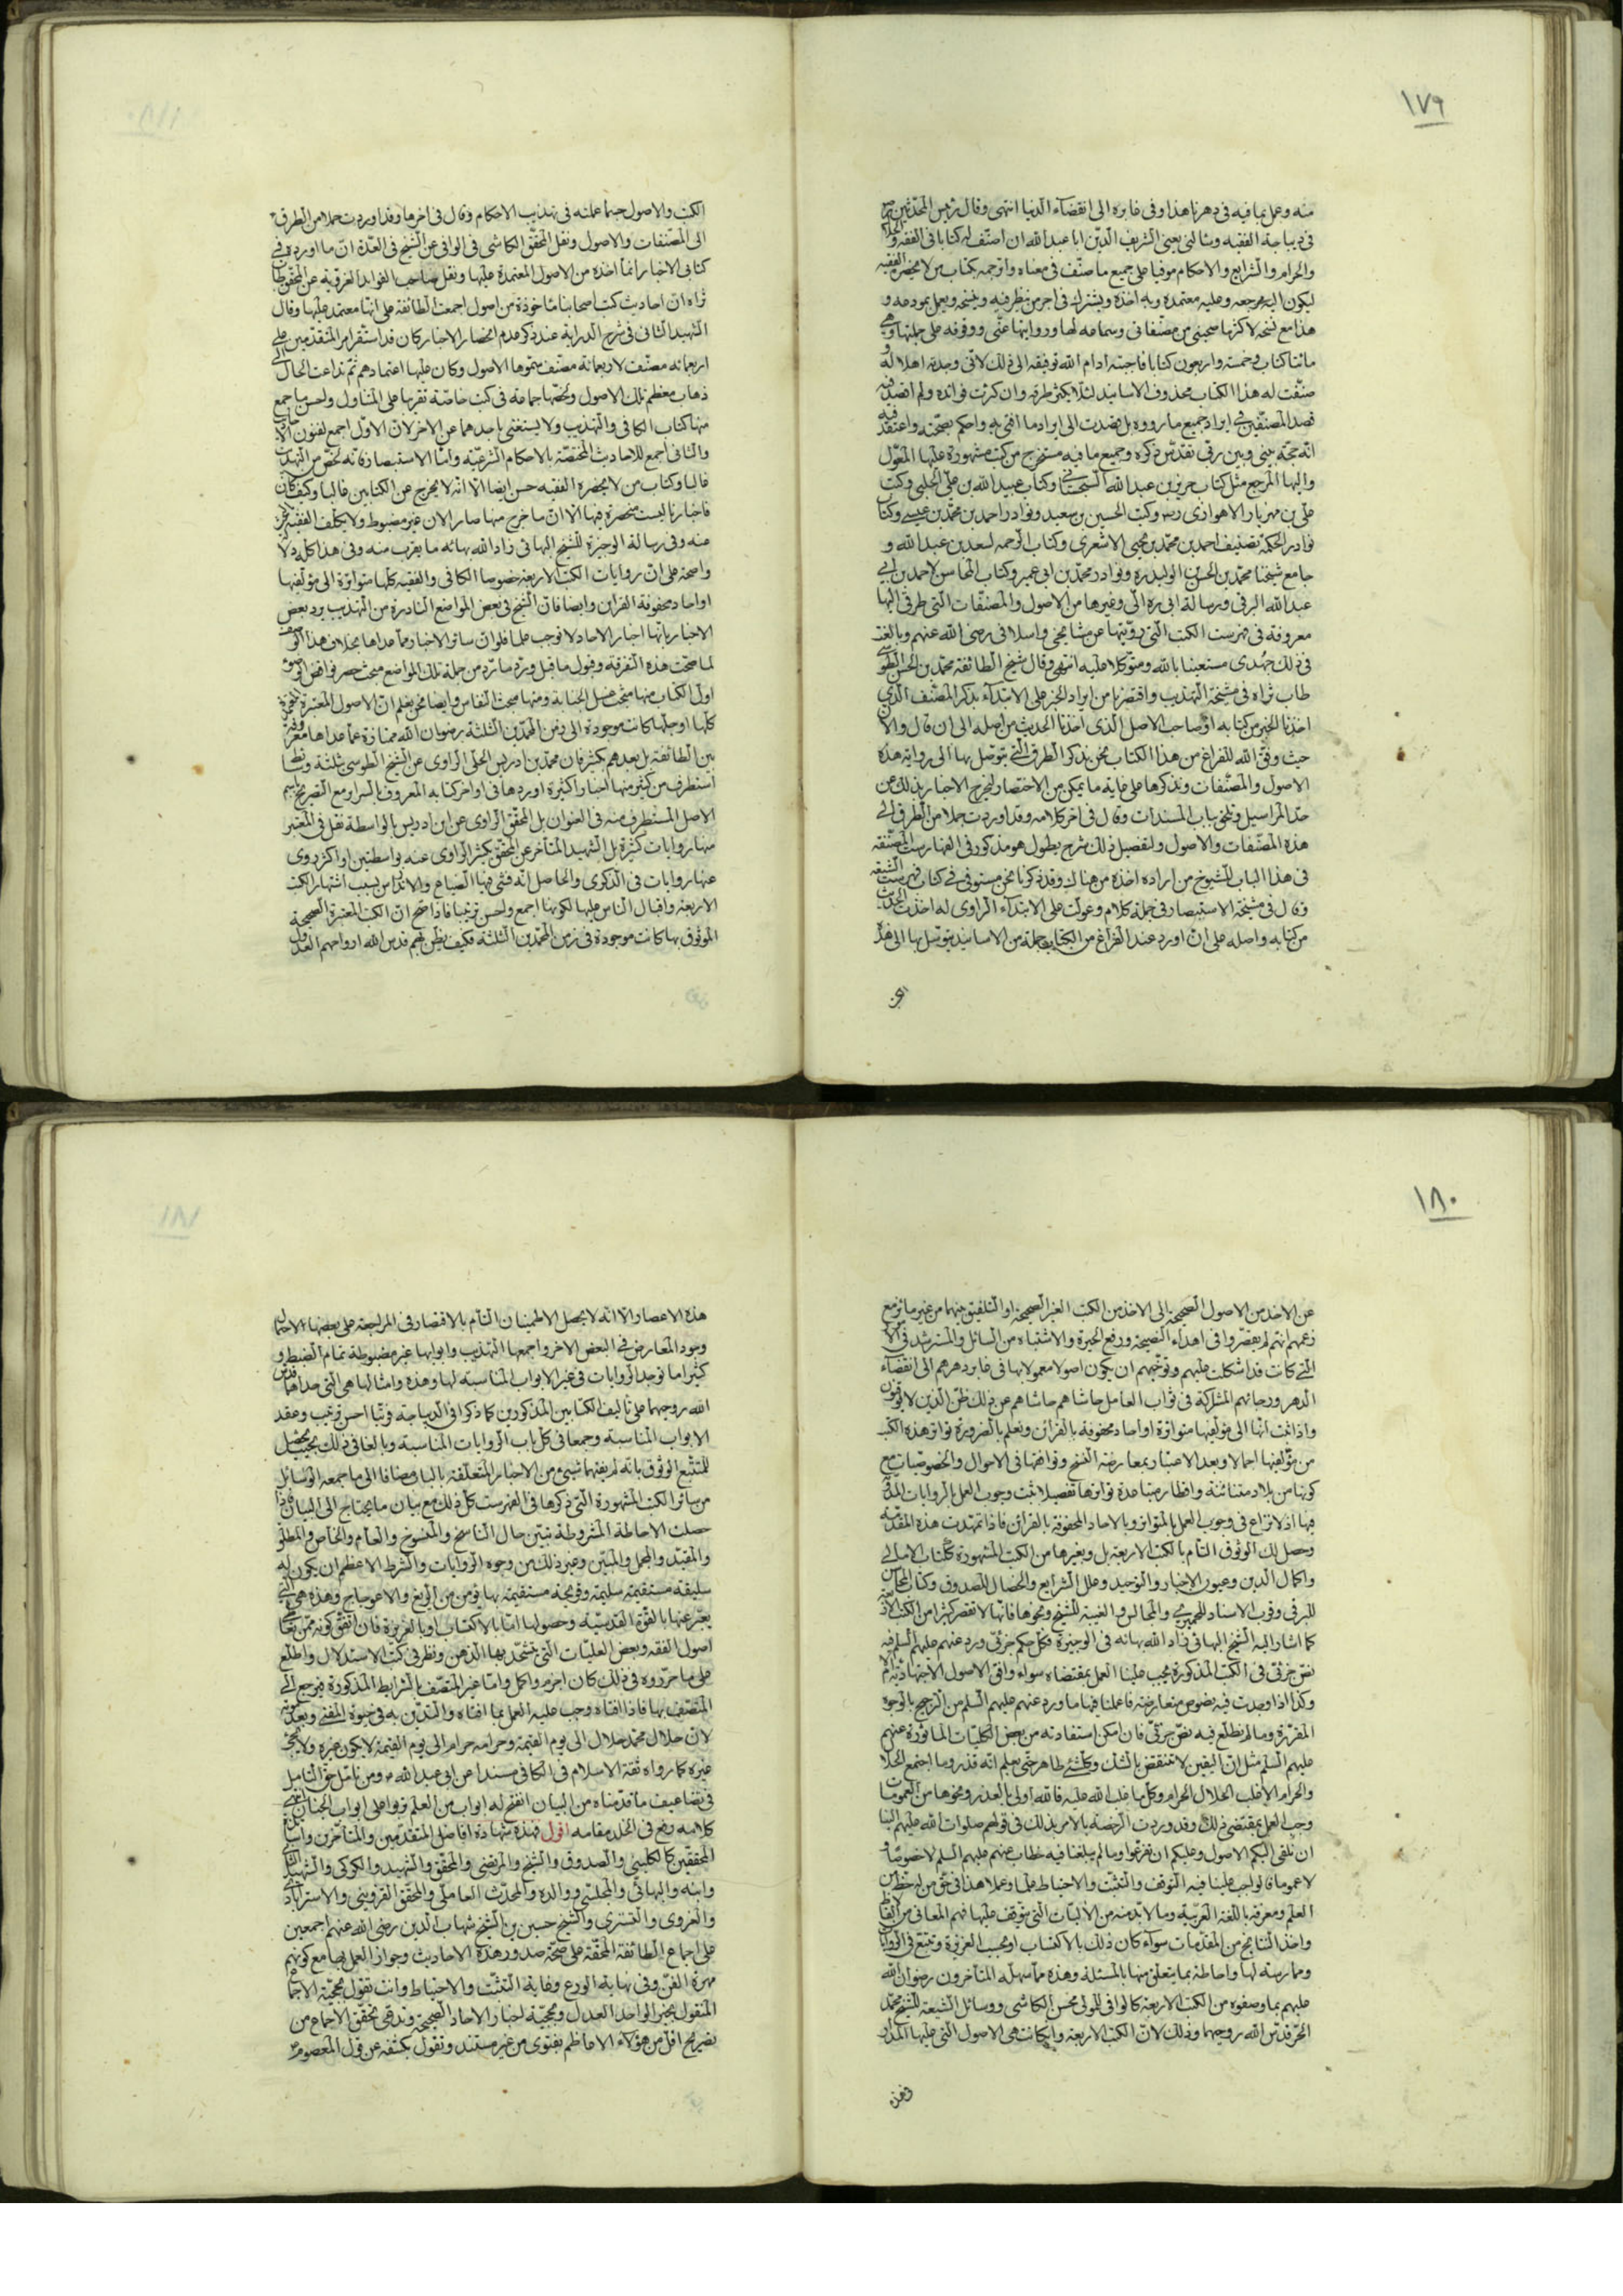 ١٧٩
منه وعمل بما فيه فى دهرنا هذا وفى غابره الى انقضآء الدنيا انتهى وقال رئيس المحدثين
فى ديباجة الفقيه وسالنى يعنى الشريف الدين ابا عبد الله ان اصنف له كتابا فى الفقه والحلال
والحرام والشرايع والاحكام موفيا على جميع ما صنفت فى معناه واترجمه بكتاب من لا يحضره الفقيه
ليكون اليه مرجعه وعليه معتمده وبه اخذه ويشترك فى اجر من ينظر فيه وينسخه ويعمل بمودعه و
هذا مع نسخه لاكثرها صحبنى من مصنفاتى وسماعه لها وروايتها عنى ووقوفه على جملتها وهى
مائتا كتاب وخمسة واربعون كتابا فاجبته ادام الله توفيقه الى ذلك لانى وجدته اهلا له و
صنفت له هذا الكتاب محذوف الاسانيد لئلا يكثر طرقه وان كثرت فوائده ولم اقصد فيه
قصد المصنفين فى ايراد جميع ما رووه بل قصدت الى ايراد ما افتى به واحكم بصحته واعتقد فيه
انه حجة بينى وبين ربى تقدس ذكره وجميع ما فيه مستخرج من كتب مشهورة عليها المعول
واليها المرجع مثل كتاب حريز بن عبد الله السجستانى وكتاب عبيد الله بن على الحلبى وكتب
على بن مهزيار الاهوازى وكتب الحسين بن سعيد ونوادر احمد بن محمد بن عيسى وكتاب
نوادر الحكمة تصنيف احمد بن محمد بن يحيى الاشعرى وكتاب الرحمة لسعد بن عبد الله و
جامع شيخنا محمد بن الحسن بن الوليد ره ونوادر محمد بن ابى عمير وكتاب المحاسن لاحمد بن ابى
عبد الله البرقى ورسالة ابى ره الى وغيرها من الاصول والمصنفات التى طرقى اليها
معروفة فى فهرست الكتب التى رويتها عن مشايخى واسلافى رضى الله عنهم وبالغت
فى ذلك جهدى مستعينا بالله ومتوكلا عليه انتهى وقال شيخ الطائفة محمد بن الحسن الطوسى
طاب ثراه فى مشيخة التهذيب واقتصرنا من ايراد الخبر على الابتداء بذكر المصنف الذى
اخذنا الخبر من كتابه او صاحب الاصل الذى اخذنا الحديث من اصله الى ان قال والان
حيث وفق الله للفراغ من هذا الكتاب نحن نذكر الطرق التى يتوصل بها الى رواية هذه
الاصول والمصنفات ونذكرها على غاية ما يمكن من الاختصار لتخرج الاخبار بذلك عن
حد المراسيل وتلحق بباب المسندات وقال فى آخر كلامه وقد اوردت جملا من الطرق الى
هذه المصنفات والاصول ولتفصيل ذلك شرح يطول هو مذكور فى الفهارست المصنفة
فى هذا الباب للشيوخ من اراده اخذه من هناك وقد ذكرنا نحن مستوفى فى كتاب فهرست الشيعة
وقال فى مشيخة الاستبصار فى جملة كلام وعولت على الابتداء الراوى له اخذت الحديث
من كتابه واصله على ان اورد عند الفراغ من الكتاب جملة من الاسانيد يتوسل بها الى هذه
الكتب والاصول حسبما عملته فى تهذيب الاحكام وقال فى اخرها وقد اوردت جملا من الطرق
الى المصنفات والاصول ونقل المحقق الكاشى فى الوافى عن الشيخ فى العدة ان ما اورده فى
كتابى الاخبار انما اخذه من الاصول المعتمدة عليها ونقل صاحب الفوائد الغروية عن المحقق طاب
ثراه ان احاديث كتب اصحابنا ماخوذة من اصول اجمعت الطائفة على انها معتمد عليها وقال
الشهيد الثانى فى شرح الدراية عند ذكر عدم انحصار الاخبار كان قد استقر امر المتقدمين على
اربعمائة مصنف لاربعمائة مصنف سموها الاصول وكان عليها اعتمادهم ثم تداعت الحال الى
ذهاب معظم تلك الاصول ولخصها جماعة فى كتب خاصة تقريبا على المتناول واحسن ما جمع
منها كتاب الكافى والتهذيب ولا يستغنى باحدهما عن الاخر لان الاول اجمع لفنون الاحاديث
والثانى اجمع للاحاديث المختصة بالاحكام الشرعية واما الاستبصار فانه اخص من التهذيب
غالبا وكتاب من لا يحضره الفقيه حسن ايضا الا انه لا يخرج عن الكتابين غالبا وكيف كان
فاخبارنا ليست منحصرة فيها الا ان ما خرج منها صار الان غير مضبوط ولا يكلف الفقيه
منه وفى رسالة الوجيزة للشيخ البهائى زاد الله بهائه ما يقرب منه وفى هذا كله دلالة
واضحة على ان روايات الكتب الاربعة خصوصا الكافى والفقيه كلها متواترة الى مؤلفيها
او احاد محفوفة القراين وايضا فان الشيخ فى بعض المواضع النادرة من التهذيب يرد بعض
الاخبار بانها اخبار الاحاد لا توجب علما فلو ان سائر الاخبار مما عداها بخلاف هذا الوصف
لما صحت هذه التفرقة وقبول ما قبل ورد ما ترد من جملة تلك المواضع مبحث حصر نواقض الوضوء
اول الكتاب منها مبحث غسل الجنابة ومنها مبحث النفاس وايضا نحن نعلم ان الاصول المعتبرة
كلها او جلها كانت موجودة الى زمن المحمدين الثلثة رضوان الله ممتازة عما عداها معروفة
بين الطائفة بل بعدهم بكثير فان محمد بن ادريس الحلى الراوى عن الشيخ الطوسى بثلثة وسائط
استطرف من كثير منها اخبارا كثيرة اوردها فى اواخر كتابه المعروف بالسرائر مع التصريح باسم
الاصل المستطرف منه فى العنوان بل المحقق الراوى عن ابن ادريس بالواسطة نقل فى المعتبر
منها روايات كثيرة بل الشهيد المتاخر عن المحقق بكثير الراوى عنه بواسطتين او اكثر روى
عنها روايات فى الذكرى والحاصل انه فشى فيها الضياع والاندراس بسبب اشتهار الكتب
الاربعة واقبال الناس عليها لكونها اجمع واحسن ترتيبا فاذا صح ان الكتب المعتبرة الصحيحة
الموثوق بها كانت موجودة فى زمن المحمدين الثلثة فكيف يظن بهم قدس الله ارواحهم العدول
١٨٠
عن الاخذ من الاصول الصحيحة الى الاخذ من الكتب الغير الصحيحة او التلفيق بينهما من غير مائز مع
زعمهم انهم لم يقصروا فى اهداء النصيحة ورفع الحيرة والاشتباه من السائل والمسترشد فى
التى كانت قد اشكلت عليهم وتوخيهم ان يكون اصولا معمولا بها فى غابر دهرهم الى انقضآء
الدهر ورجائهم المشاركة فى ثواب العامل حاشاهم حاشاهم عن ذلك ظن الذين لا يوقنون
واذا ثبت انها الى مؤلفيها متواترة او احاد محفوفة بالقرائن ونعلم بالضرورة تواتر هذه الكتب
من مؤلفيها اجمالا وبعد الاعتبار بمعارضة النسخ وتوافقها فى الاحوال والخصوصيات مع
كونها من بلاد متنائية واقطار متباعدة تواترها تفصيلا ثبت وجوب العمل بالروايات المدونة
فيها اذ لا نزاع فى وجوب العمل بالمتواتر وبالاحاد المحفوفة بالقرائن فاذا تمهدت هذه المقدمة
وحصل لك الوثوق التام بالكتب الاربعة بل وبغيرها من الكتب المشهورة ككتاب الامالى
واكمال الدين وعيون الاخبار والتوحيد وعلل الشرايع والخصال للصدوق وكتاب المحاسن
للبرقى وقرب الاسناد للحميرى والمجالس والغيبة للشيخ ونحوها فانها لا تقصر كثيرا من الكتب الاربعة
كما اشار اليه الشيخ البهائى زاد الله بهائه فى الوجيزة فكل حكم جزئى ورد عنهم عليهم السلم فيه
نص جزئى فى الكتب المذكورة يجب علينا العمل بمقتضاه سواء وافق الاصول الاجتهادية ام لا
وكذا اذا وجدت فيه نصوص متعارضة فاعملنا فيها ما ورد عنهم عليهم السلم من الترجيح بالوجوه
المقررة وما لم نطلع فيه نص جزئى فان امكن استفادته من بعض الكليات الماثورة عنهم
عليهم السلم مثل ان اليقين لا تنقض بالشك وكل شئ طاهر حتى يعلم انه قذر وما اجتمع الحلال
والحرام الا غلب الحلال الحرام وكل ما غلب الله عليه فالله اولى بالعذر ونحوها من العمومات
وجب العمل بمقتضى ذلك وقد وردت الرخصة بالامر بذلك فى قولهم صلوات الله عليهم علينا
ان نلقى اليكم الاصول وعليكم ان تفرعوا وما لم يبلغنا فيه خطاب عنهم عليهم السلم لا خصوصا و
لا عموما فالواجب علينا فيه التوقف والتثبت والاحتياط علما وعملا هذا فى حق من له حظ من
العلم ومعرفة باللغة العربية وما لا بد منه من الآليات التى يتوقف عليها فهم المعانى من الالفاظ
واخذ النتايج من المقدمات سوآء كان ذلك بالاكتساب او بحسب الغريزة وتتبع فى الروايات
وممارسة لها واحاطة بما يتعلق منها بالمسئلة وهذه مما سهله المتاخرون رضوان الله
عليهم بما وصفوه من الكتب الاربعة كالوافى للمولى محسن الكاشى ووسائل الشيعة للشيخ محمد
الحر قدس الله روحيهما وذلك لان الكتب الاربعة وان كانت هى الاصول التى عليها المدار
وهذه
هذه الاعصار الا انه لا يحصل الاطمينان التام بالاقتصار فى المراجعة على بعضها لاحتمال
وجود المعارض فى البعض الاخر واجمعها التهذيب وابوابها غير مضبوطة تمام الضبط و
كثيرا ما توجد الروايات فى غير الابواب المناسبة لها وهذه وامثالها هى التى حداهما قدس
الله روحيهما على تاليف الكتابين المذكورين كما ذكرا فى الديباجة ورتبا احسن ترتيب وعقد
الابواب المناسبة وجمعا فى كل باب الروايات المناسبة وبالغا فى ذلك بحيث يحصل
للمتتبع الوثوق بانه لم يفتهما شىء من الاخبار المتعلقة بالباب مضافا الى ما جمعه الوسائل
من سائر الكتب المشهورة التى ذكرها فى الفهرست كل ذلك مع بيان ما يحتاج الى البيان فاذا
حصلت الاحاطة المشروطة تبين حال الناسخ والمنسوخ والعام والخاص والمطلق
والمقيد والمجمل والمبين وغير ذلك من وجوه الروايات والشرط الاعظم ان يكون له
سليقة مستقيمة سليمة وقريحة مستقيمة بها تؤمن من الزيغ والاعوجاج وهذه هى التى
يعبر عنها بالقوة القدسية وحصولها اما بالاكتساب او بالغريزة فان اتفق كونه ممن تعاطى
اصول الفقه وبعض العليات التى يشحذ بها الذهن ونظر فى كتب الاستدلال واطلع
على ما حرروه فى ذلك كان احزم واكمل واما غير المتصف بالشرايط المذكورة فيرجع الى
المتصف بها فاذا افتاه وجب عليه العمل بما افتاه والتدين به فى حيوة المفتى وبعد موته
لان حلال محمد حلال الى يوم القيمة وحرامه حرام الى يوم القيمة لا يكون غيره ولا يجئ
غيره كما رواه ثقة الاسلام فى الكافى مسندا عن ابى عبد الله ومن تامل حق التامل
فى تضاعيف ما قدمناه من البيان انفتح له ابواب من العلم هى اعلى ابواب الجنان انتهى
كلامه رفع فى الخلد مقامه اقول فهذه شهادة افاضل المتقدمين والمتاخرين واساطين
المحققين كالكلينى والصدوق والشيخ والمرتضى والمحقق والشهيد والكركى والشهيد الثانى
وابنه والبهائى والمجلسى ووالده والمحدث العاملى والمحقق القزوينى والاسترابادى
والغروى والتسترى والشيخ حسين بن الشيخ شهاب الدين رضى الله عنهم اجمعين
على اجماع الطائفة المحقة على صحة صدور هذه الاحاديث وجواز العمل بها مع كونهم
مهرة الفن وفى نهاية الورع وغاية التثبت والاحتياط وانت تقول بحجية الاجماع
المنقول بخبر الواحد العدل وبحجية اخبار الاحاد الصحيحة وتدعى تحقق الاجماع من
تصريح اقل من هؤلاء الاعاظم بفتوى من غير مستند وتقول بكشفه عن قول المعصوم
١٨١